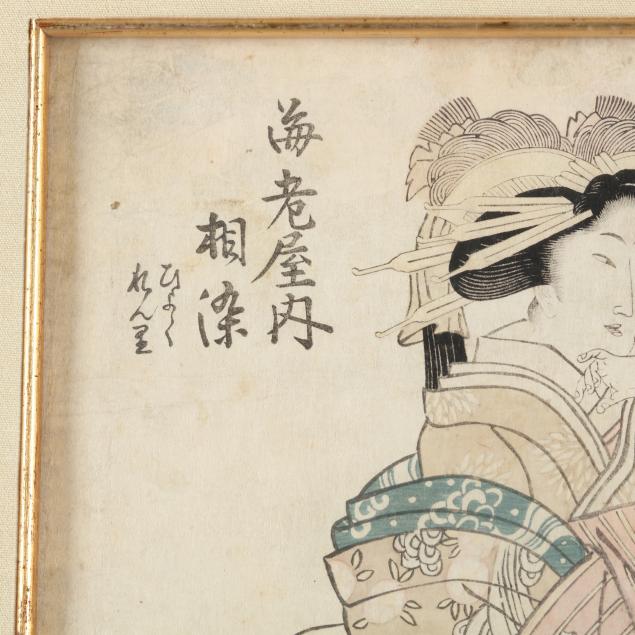 海老屋内
相染
ひよく
れん里